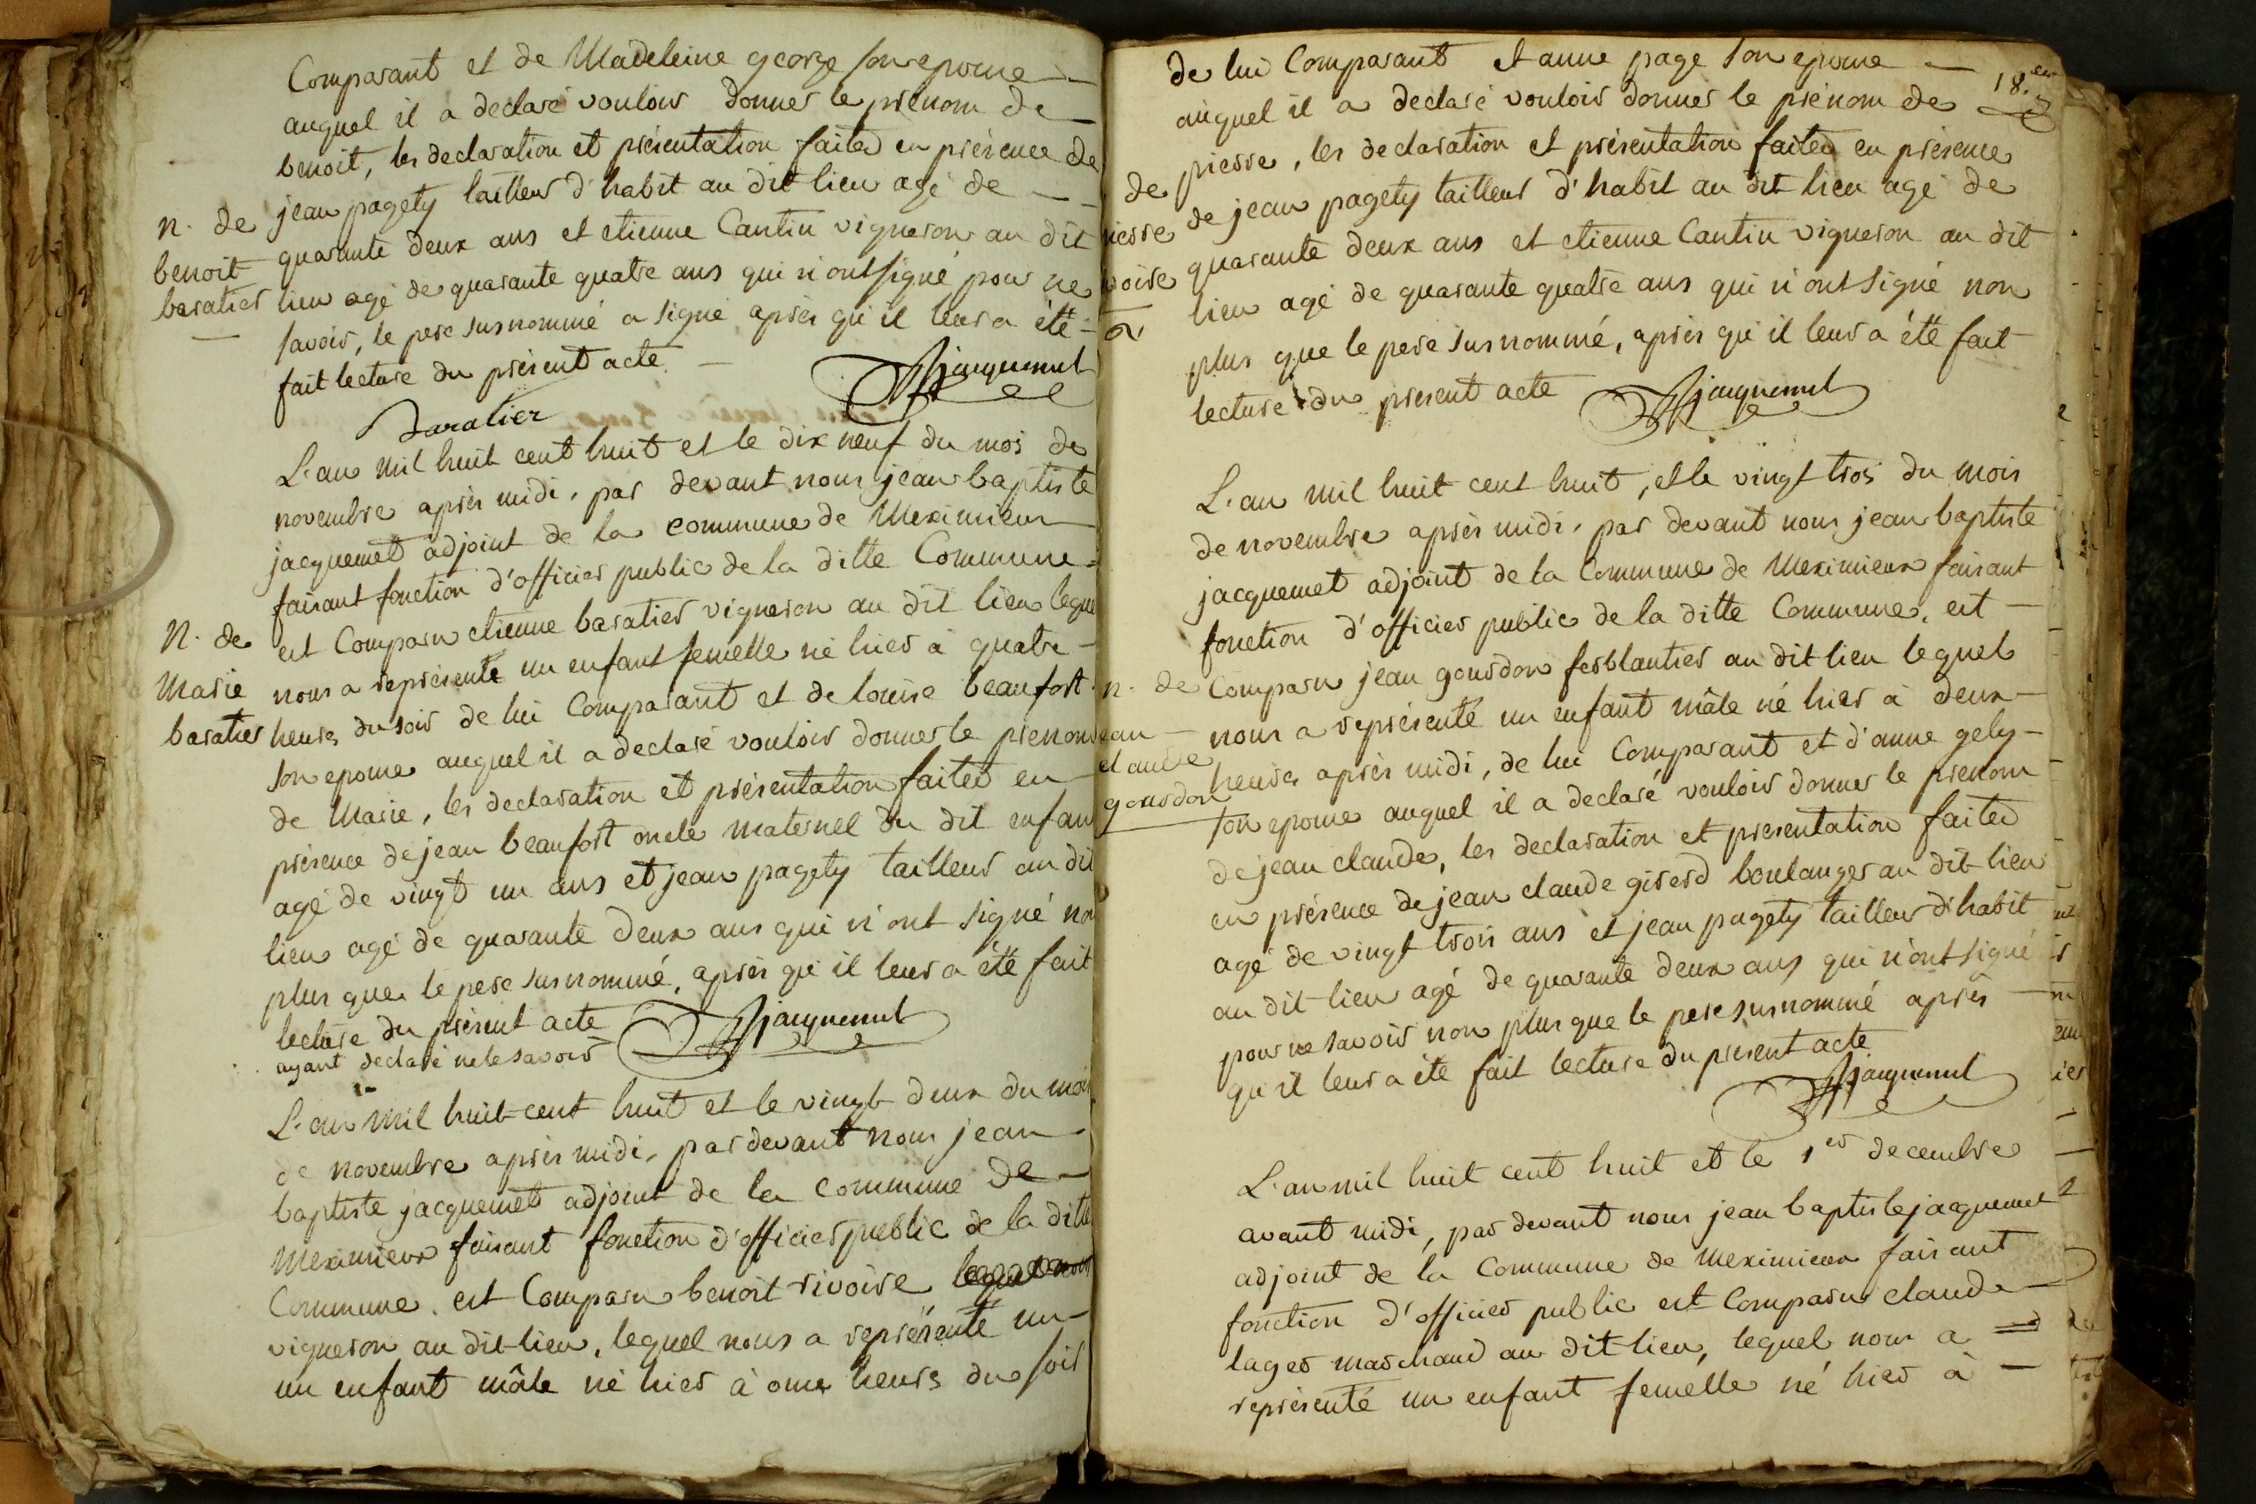 Comparant et de Madeleine george son epouse
auquel il a declaré vouloir donner le prénom de
benoit, les declaration et présentation faites en présence de
jean pagety tailleur d'habit au dit lieu agé de
quarante deux ans et etienne Cantin vigneron au dit
lieu agé de quarante quatre ans qui n'ont signé pour ne
savoir, le pere susnommé a signé après qu'il leur a été
fait lecture du présent acte.
n. de
benoit
baratier
baratier
jjacquemet
L'an mil huit cent huit et le dix neuf du mois de
novembre après midi, par devant nous jean baptiste
jacquemet adjoint de la commune de Meximieux
faisant fonction d'officier public de la ditte Commune
est Comparu etienne baratier vigneron au dit lieu leque
nous a représenté un enfant femelle né hier à quatre
heures du soir de lui Comparant et de louise beaufort
son epouse auquel il a declaré vouloir donner le prenom
de Marie, les declaration et présentation faites en
présence de jean beaufort oncle maternel du dit enfan
agé de vingt un ans et jean pagety tailleur au dit
lieu agé de quarante deux ans qui n'ont signé non
plus que le pere susnommé, après qu'il leur a été fait
lecture du présent acte
ayant declaré ne le savoir
n. de
Marie
baratier
jjacquemet
L'an mil huit cent huit et le vingt deux du mois
de novembre après midi, par devant nous jean
baptiste jacquemet adjoint de la commune de
Meximieux faisant fonction d'officier public de la ditte
Commune. est Comparu benoit rivoire lequel nous
vigneron au dit lieu, lequel nous a représenté un
un enfant mâle né hier à onze heures du soir
18.
de lui Comparant et anne page son epouse
auquel il a declaré vouloir donner le prénom de
pierre, les declaration et présentation faites en présence
de jean pagety tailleur d'habit au dit lieu agé de
quarante deux ans et etienne Cantin vigneron au dit
lieu agé de quarante quatre ans qui n'ont signé non
plus que le pere susnommé, après qu'il leur a été fait
lecture du present acte
de
ierre
voire
jjacquemet
L'an mil huit cent huit, et le vingt trois du mois
de novembre après midi, par devant nous jean baptiste
jacquemet adjoint de la Commune de Meximieux faisant
fonction d'officier public de la ditte Commune, est
Comparu jean gourdon ferblantier au dit lieu lequel
nous a représenté un enfant mâle né hier à deux
heures après midi, de lui Comparant et d'anne gely
son epouse auquel il a declaré vouloir donner le prenom
de jean claude, les declaration et presentation faites
en présence de jean claude girerd boulanger au dit lieu
agé de vingt trois ans et jean pagety tailleur d'habit
au dit lieu agé de quarante deux ans qui n'ont signé
pour ne savoir non plus que le pere susnommé après
qu'il leur a été fait lecture du present acte
n. de
ean
claude
gourdon
jjacquemet
L'an mil huit cent huit et le 1er decembre
avant midi, par devant nous jean baptiste jacquemet
adjoint de la Commune de Meximieux faisant
fonction d'officier public est Comparu claude
lager marchand au dit lieu, lequel nous a
représenté un enfant femelle né hier à